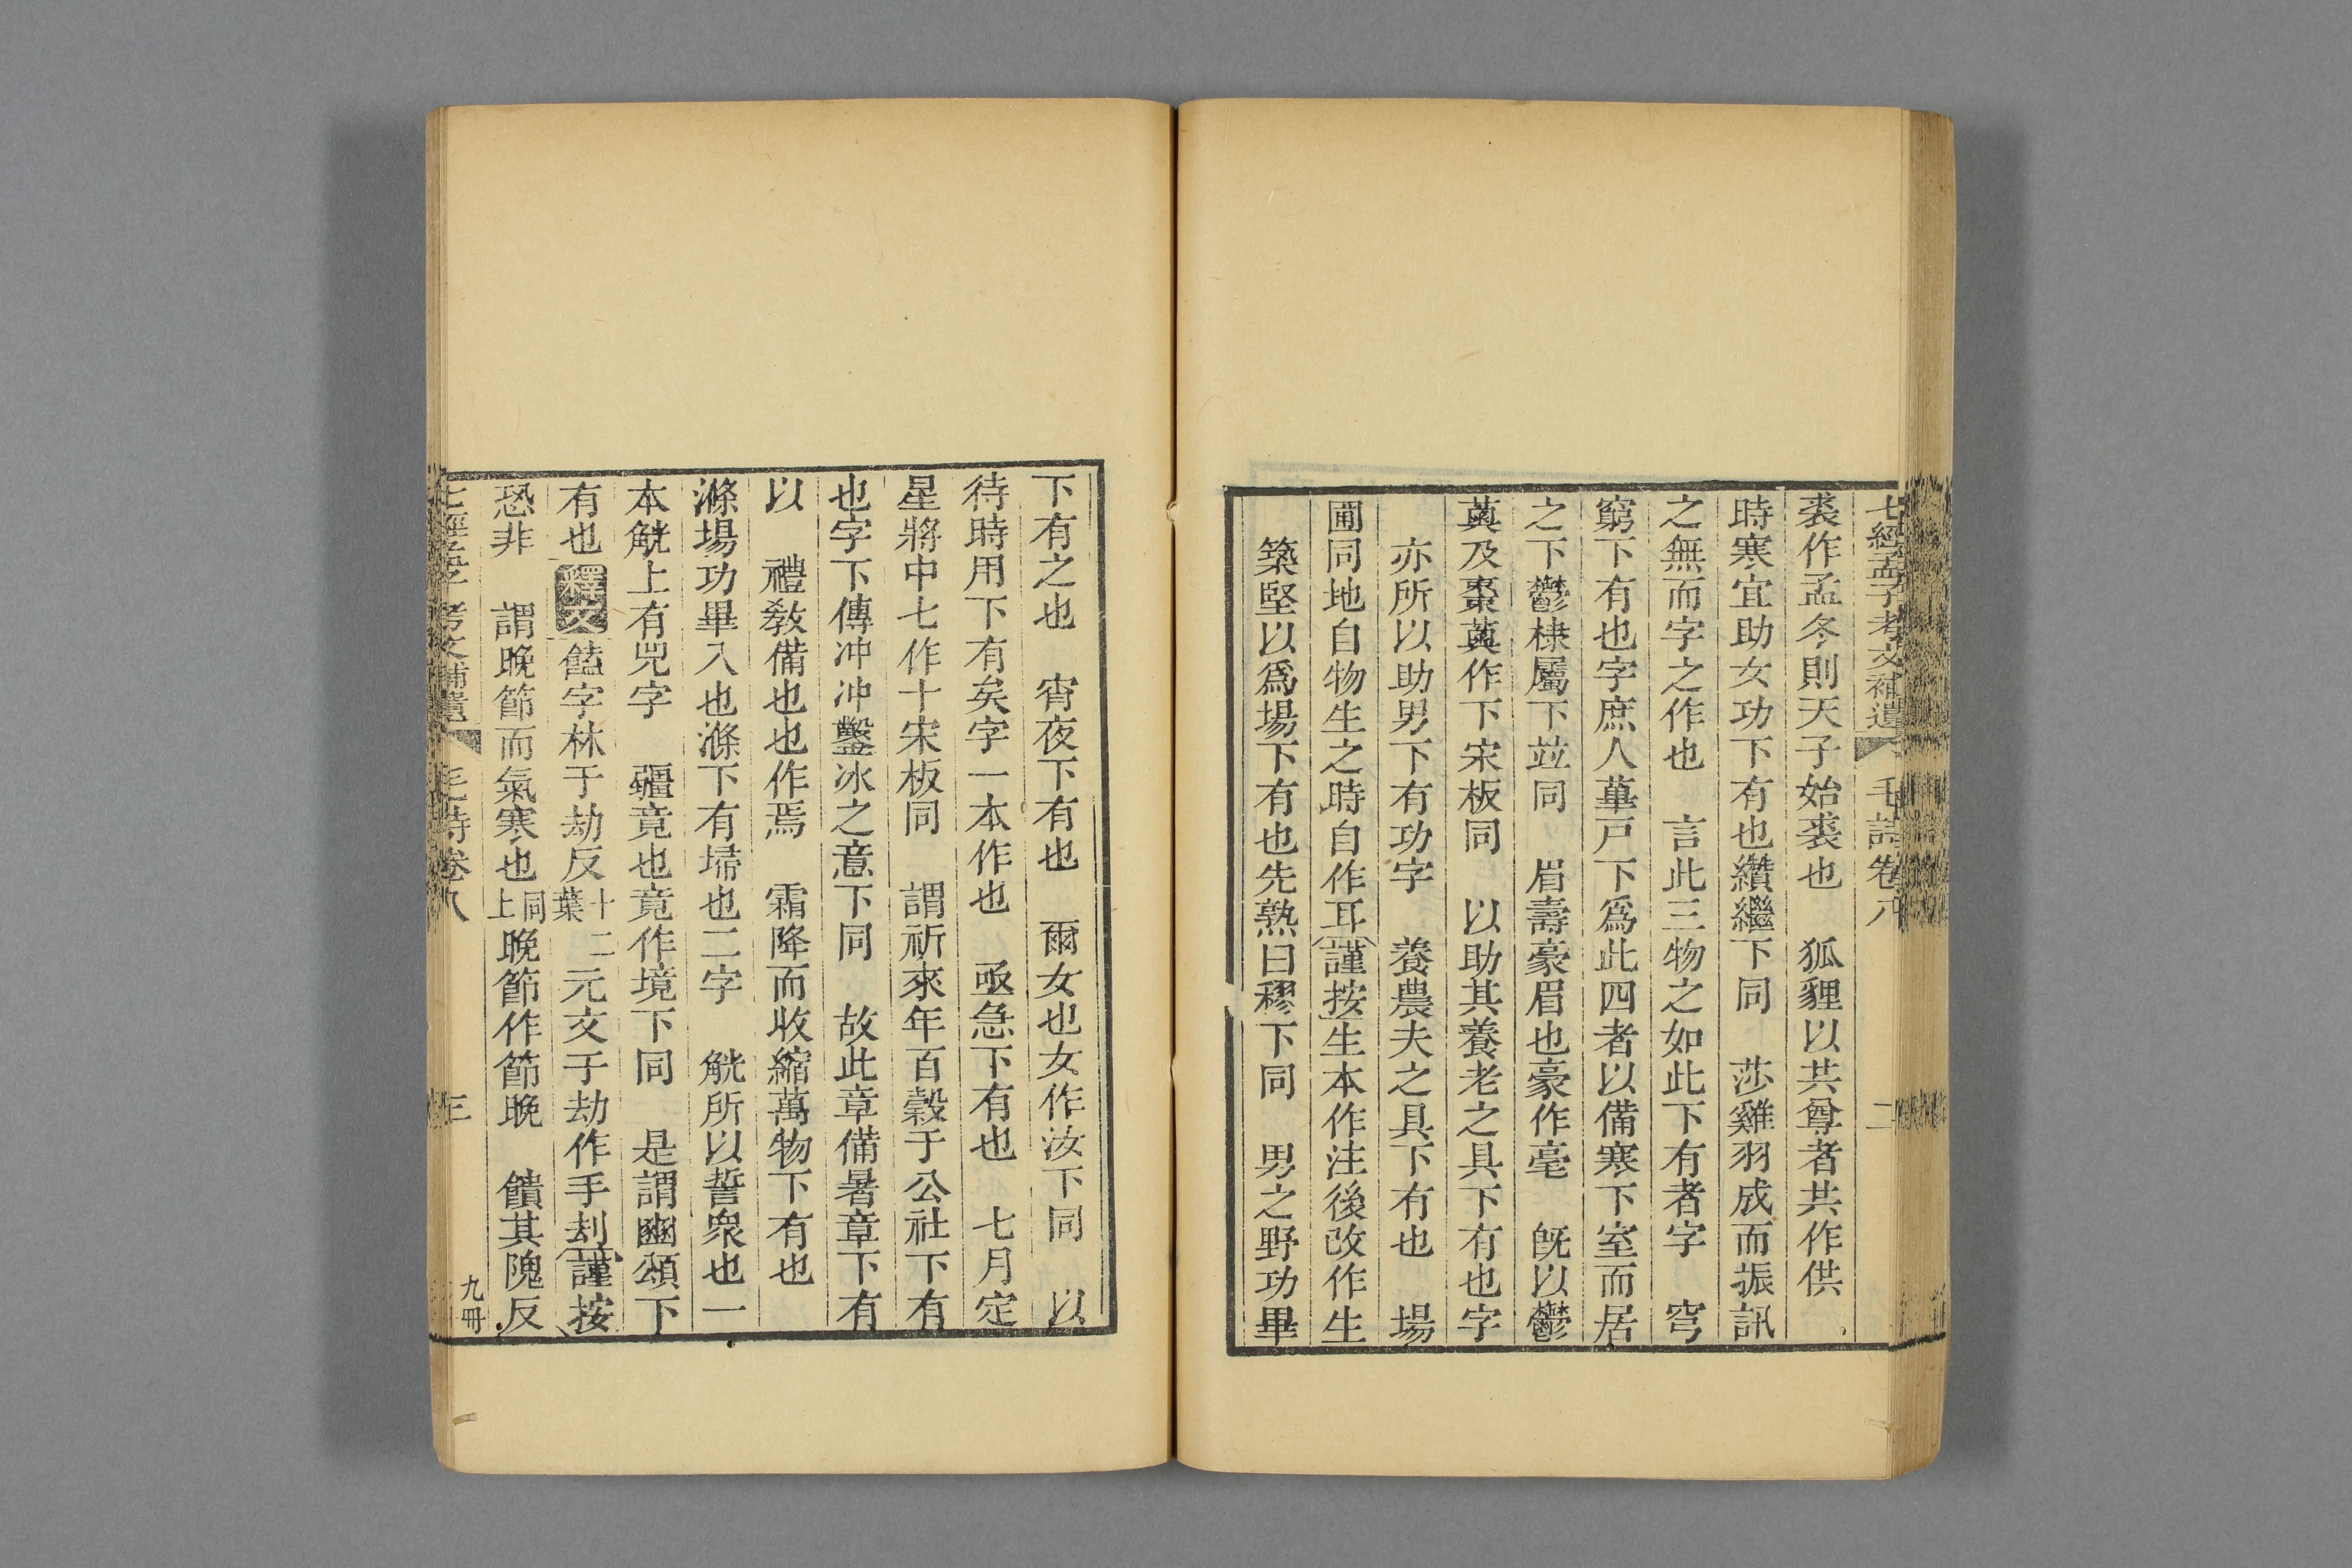 七經孟子考文補遺 毛詩卷八 二
裘作孟冬則天子始裘也 狐貍以共尊者共作供
時寒宜助女功下有也纘繼下同 莎雞羽成而振訊
之無而字之作也 言此三物之如此下有者字 穹
窮下有也字庶人蓽戸下爲此四者以備寒下室而居
之下鬱棣屬下竝同 眉壽豪眉也豪作毫 旣以鬱
薁及棗薁作下宋板同 以助其養老之具下有也字
亦所以助男下有功字 養農夫之具下有也 場
圃同地自物生之時自作耳謹按生本作注後改作生
築堅以爲場下有也先熟曰穋下同 男之野功畢
下有之也 宵夜下有也 爾女也女作汝下同 以
待時用下有矣字一本作也 亟急下有也 七月定
星將中七作十宋板同 謂祈來年百穀于公社下有
也字下傳冲冲鑿冰之意下同 故此章備暑章下有
以 禮教備也也作焉 霜降而收縮萬物下有也
滌場功畢入也滌下有埽也二字 觥所以誓衆也一
本觥上有兕字 疆竟也竟作境下同 是謂豳頌下
有也 釋文 饁字林于劫反十葉 二元文于劫作手刦謹按
恐非 謂晚節而氣寒也同上 晚節作節晚 饋其隗反
七經孟子考文補遺 毛詩卷八 三 九冊